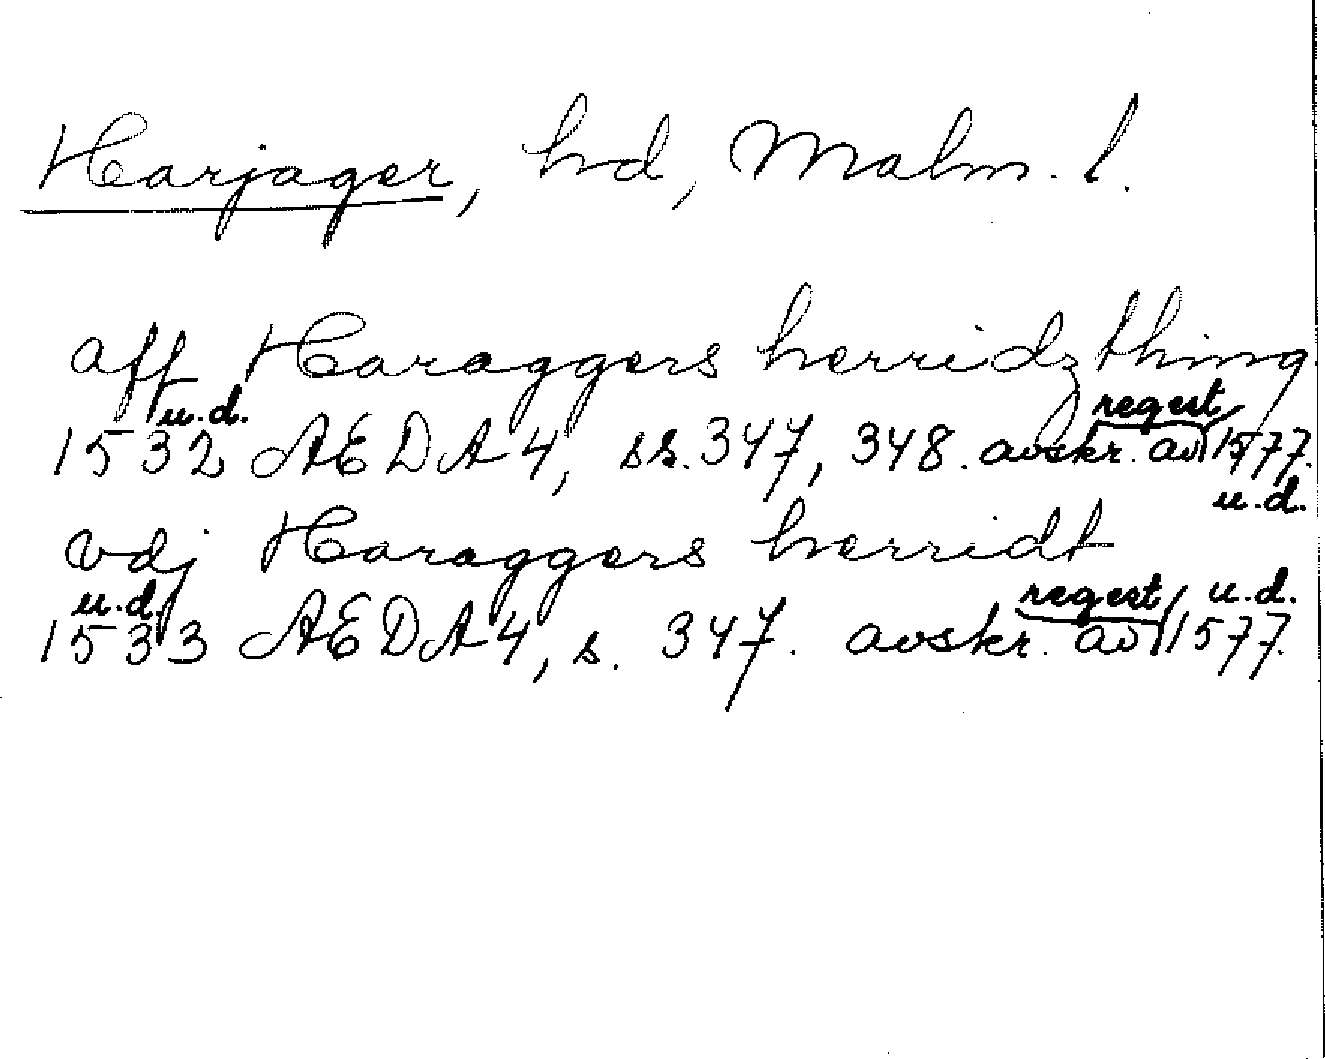 Harjager, hd, Malm. l.
aff Haraggers herridz thing
u.d. regest
1532 AEDA4, ss. 347, 348. avskr. av 1577.
u.d.
vdj Haraggers herridt
u.d. regest u.d.
1533 AEDA4, s. 347. avskr. av 1577.